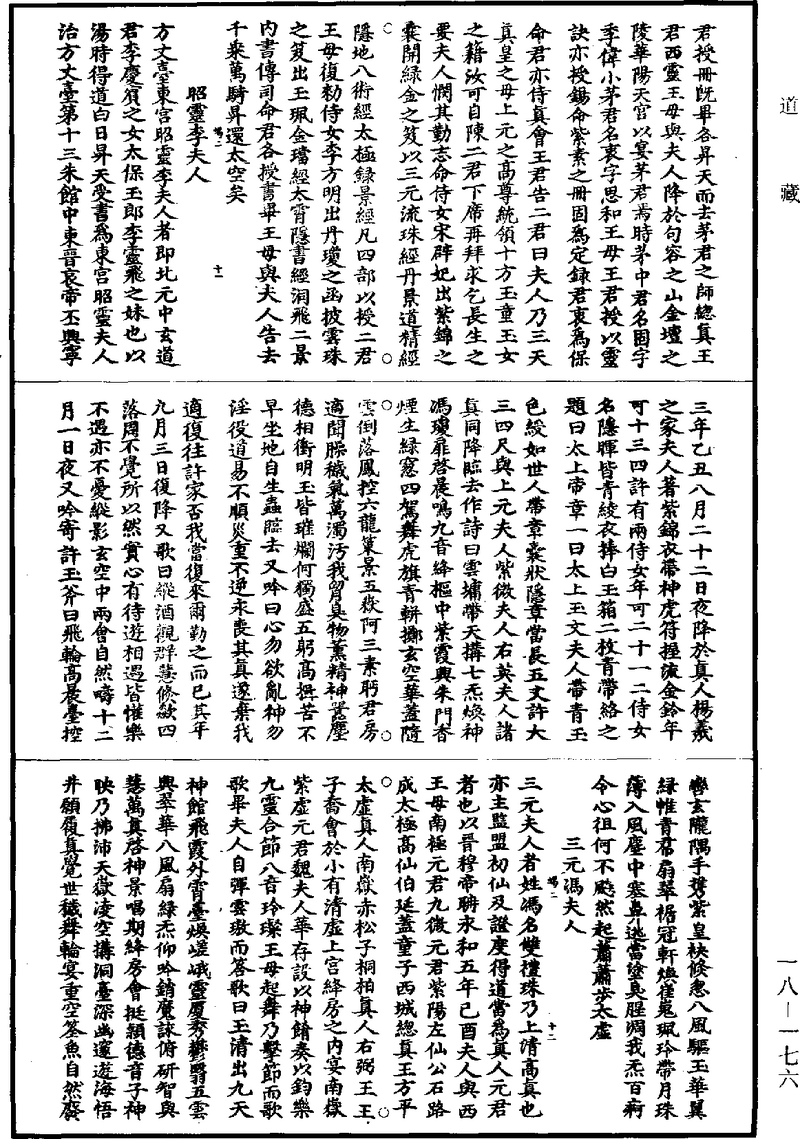 道藏
君授冊既畢各昇天而去茅君之師總真王
君西靈王母與夫人降於句容之山金壇之
陵華陽天宮以宴茅君焉時茅中君名固字
季偉小茅君名衷字思和王母王君授以靈
訣亦授錫命紫素之冊固為定錄君衷為保
命君亦侍真會王君告二君曰夫人乃三天
真皇之母上元之高尊統領十方玉童玉女
之籍汝可自陳二君下席再拜求乞長生之
要夫人憫其勤志命侍女宋辟妃出紫錦之
囊開綠金之笈以三元流珠經丹景道精經
隱地八術經太極錄景經凡四部以授二君
王母復勑侍女李方明出丹瓊之函披雲珠
之笈出玉珮金璫經太霄隱書經洞飛二景
內書傳司命君各授書畢王母與夫人告去
千乘萬騎昇還太空矣
昭靈李夫人
方丈臺東宮昭靈李夫人者即北元中玄道
君李慶賓之女太保玉郎李靈飛之妹也以
湯時得道白日昇天受書為東宮昭靈夫人
治方丈臺第十三朱館中東晉哀帝丕興寧
三年乙丑八月二十二日夜降於真人楊羲
之家夫人著紫錦衣帶神虎符握流金鈴年
可十三四許有兩侍女年可二十一二侍女
名隱暉皆青綾衣捧白玉箱二枚青帶絡之
題曰太上帝章一曰太上玉文夫人帶青玉
色綬如世人帶章囊狀隱章當長五丈許大
三四尺與上元夫人紫微夫人右英夫人諸
真同降臨去作詩曰雲墉帶天搆七炁煥神
馮瓊扉啓晨鳴九音絳樞中紫霞興朱門香
煙生綠窻四駕舞虎旗青軿擲玄空華蓋隨
雲倒落鳳控六龍策景五嶽阿三素眄君房
適聞臊穢氣萬濁污我胷臭物薰精神囂塵
德相衝明玉皆璀爛何獨盛五躬高揖苦不
早坐地自生蟲臨去又吟曰心勿欲亂神勿
淫役道易不順災重不逆永喪其真遂棄我
適復往許家否我當復來爾勤之而已其年
九月三日復降又歌曰縱酒觀群慧倏欻四
落周不覺所以然實心有待遊相遇皆惟樂
不遇亦不憂縱影玄空中兩會自然疇十二
月一日夜又吟寄許玉斧曰飛輪高晨臺控
轡玄隴隅手攜紫皇袂倏忽八風驅玉華翼
綠幃青帬扇翠裾冠軒煥崔嵬珮玲帶月珠
薄入風塵中塞鼻逃當塗臭腥凋我炁百痾
令心徂何不飈然起蕭蕭步太虛
三元馮夫人
三元夫人者姓馮名雙禮珠乃上清高真也
亦主監盟初仙及證度得道當為真人元君
者也以晉穆帝聃永和五年己酉夫人與西
王母南極元君九微元君紫陽左仙公石路
成太極高仙伯延蓋童子西城總真王方平
太虛真人南嶽赤松子桐柏真人右弼王王
子喬會於小有清虛上宮絳房之內宴南嶽
紫虛元君魏夫人華存設以神餚奏以鈞樂
九靈合節八音玲璨王母起舞乃擊節而歌
歌畢夫人自彈雲璈而答歌曰玉清出九天
神館飛霞外霄臺煥嵯峨靈厦秀鬱翳五雲
興翠華八風扇綠炁仰吟銷魔詠俯研智與
慧萬真啓神景唱期絳房會挺穎德音子神
映乃拂沛天嶽淩空搆洞臺深幽邃遊海悟
井願履真覺世穢舞輪宴重空筌魚自然廢
一八—一七六